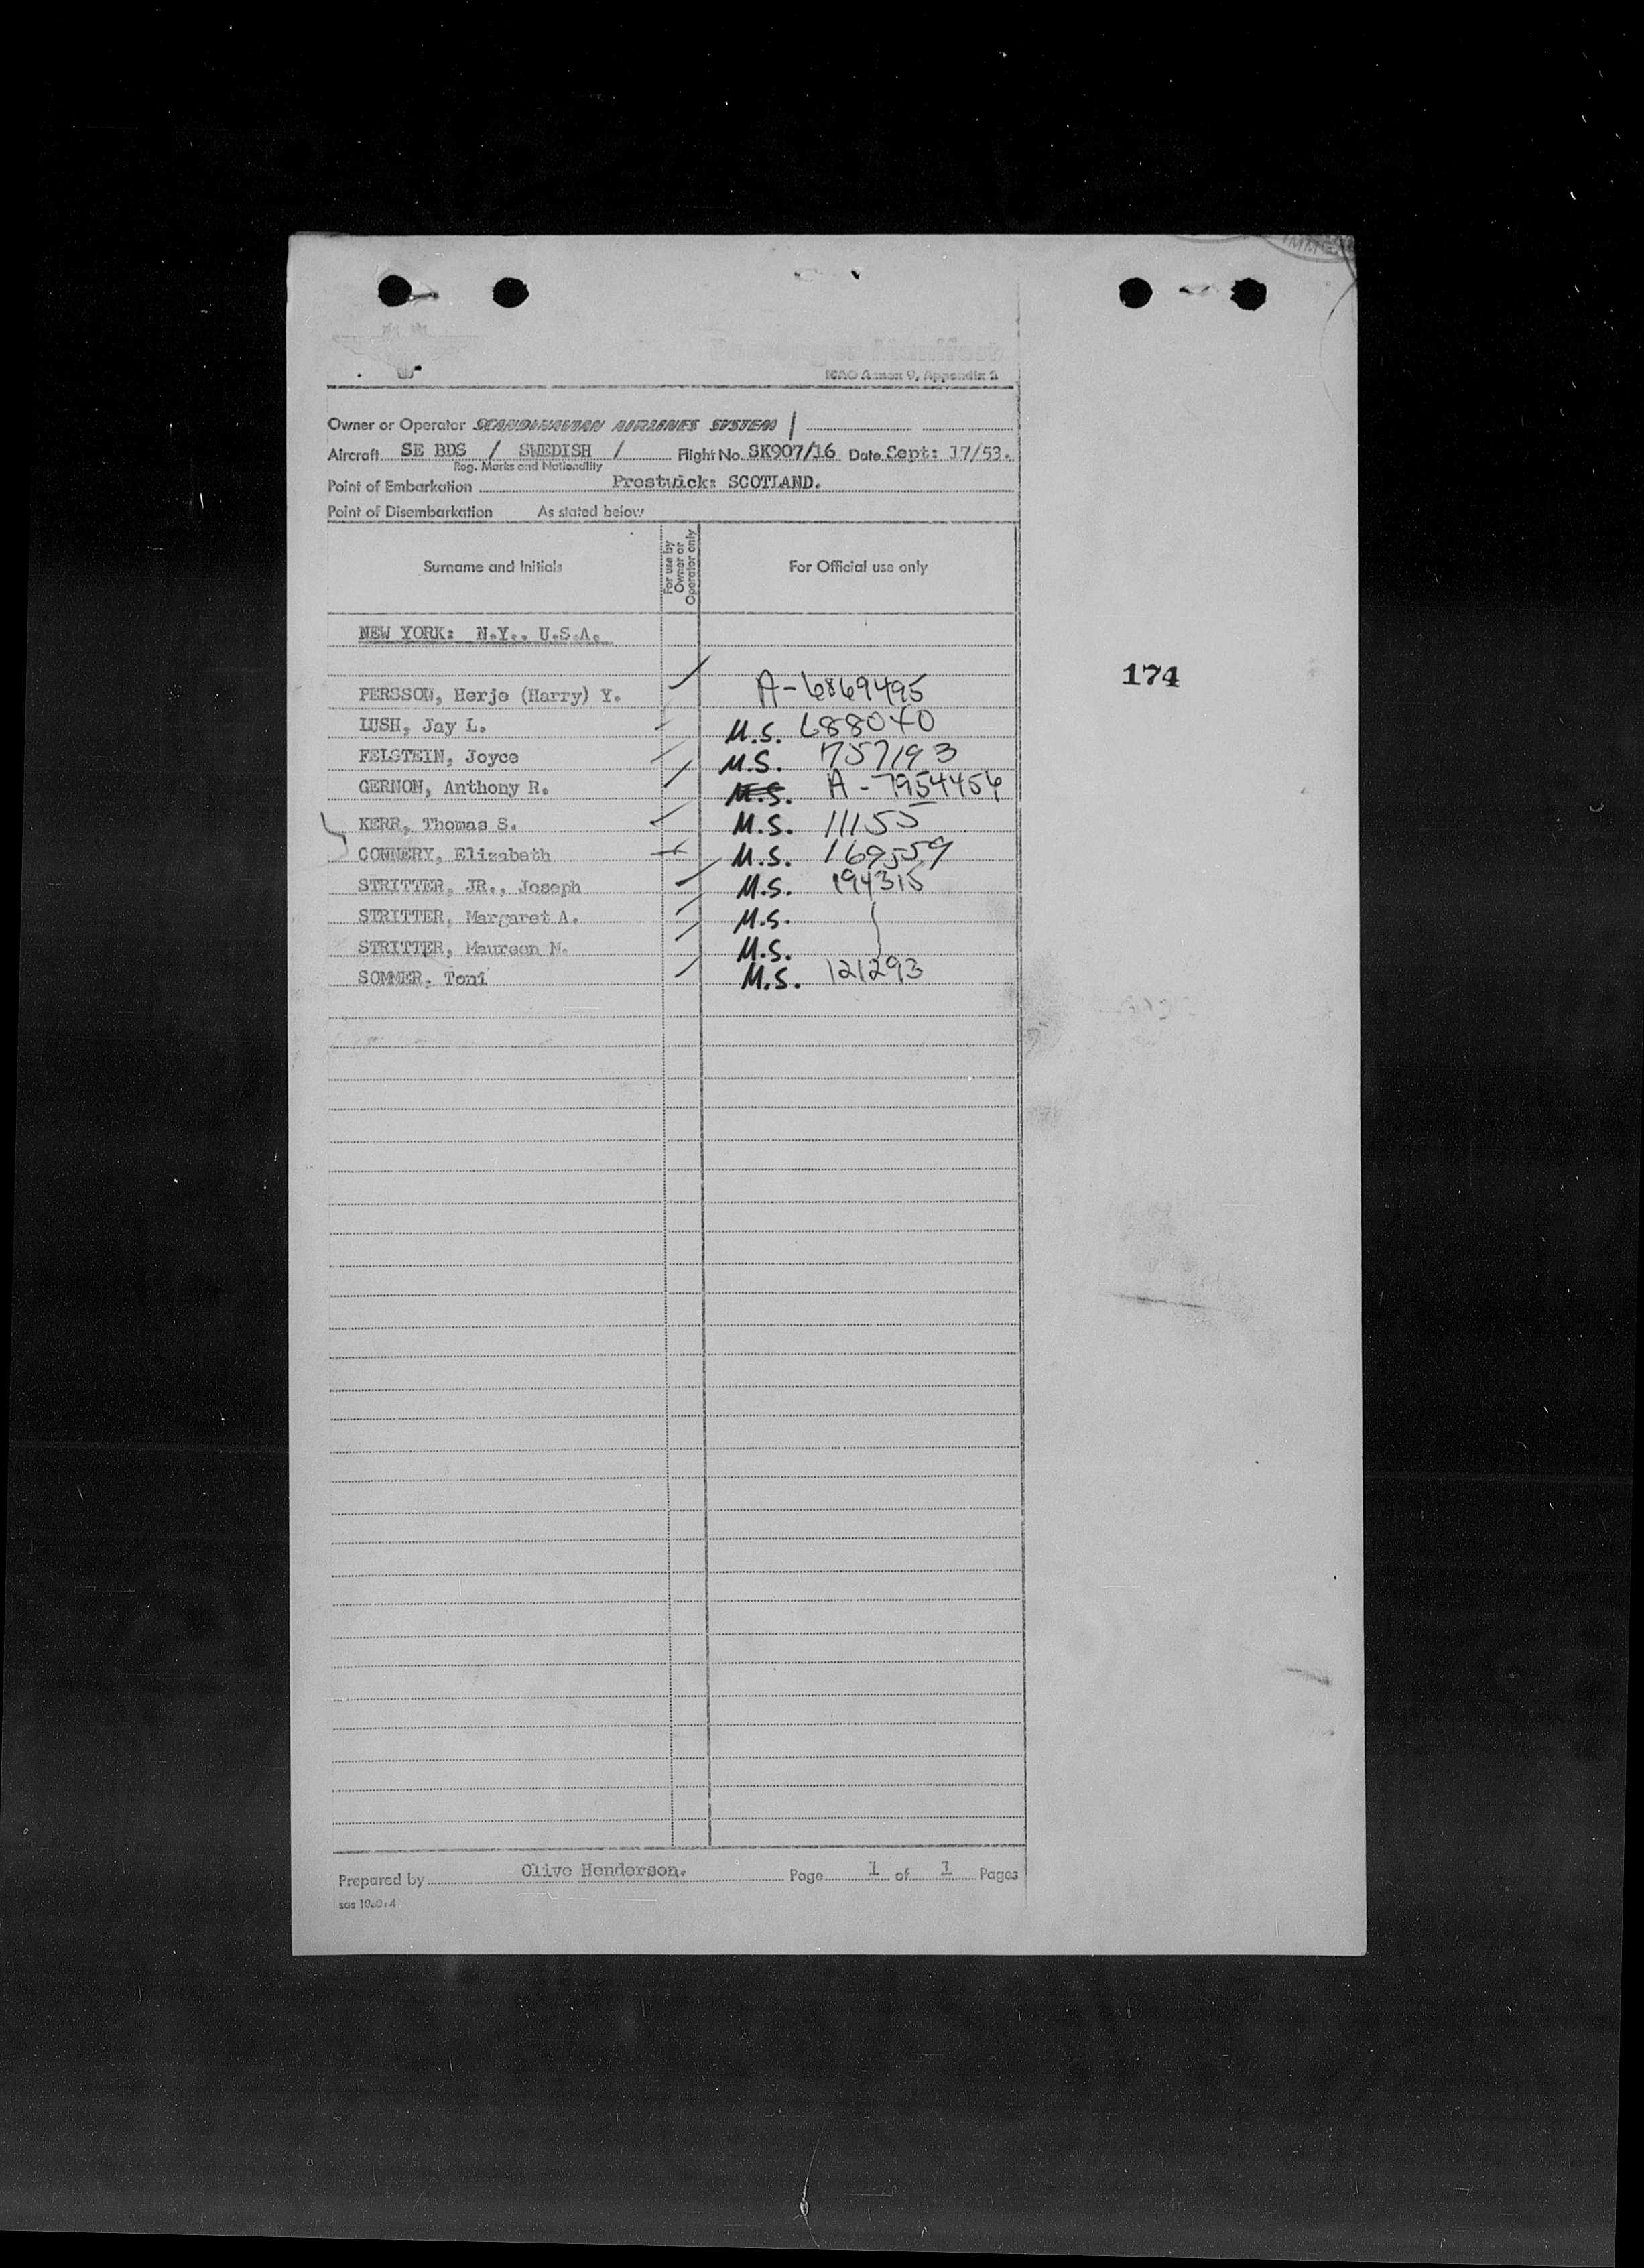 IMMI
Passenger Manifest
ICAO Annex 9, Appendix 2
Owner or Operator SCANDINAVIAN AIRLINES SYSTEM
Aircraft SE BDS / SWEDISH / Flight No. SK907/16 Date Sept: 17/53.
Reg. Marks and Nationality
Point of Embarkation Prestwick: SCOTLAND.
Point of Disembarkation As stated below
Surname and Initials For use by Owner or Operator only For Official use only
NEW YORK: N.Y., U.S.A.
174
PERSSON, Herje (Harry) Y. A-6869495
LUSH, Jay L. M.S. 688040
FELSTEIN, Joyce M.S. 757193
GERNON, Anthony R. M.S. A-7954456
KERR, Thomas S. M.S. 11155
CONNERY, Elizabeth M.S. 169559
STRITTER, JR., Joseph M.S. 194315
STRITTER, Margaret A. M.S.
STRITTER, Maureen N. M.S.
SOMMER, Toni M.S. 121293
Prepared by Olive Henderson. Page 1 of 1 Pages
sas 1060:4